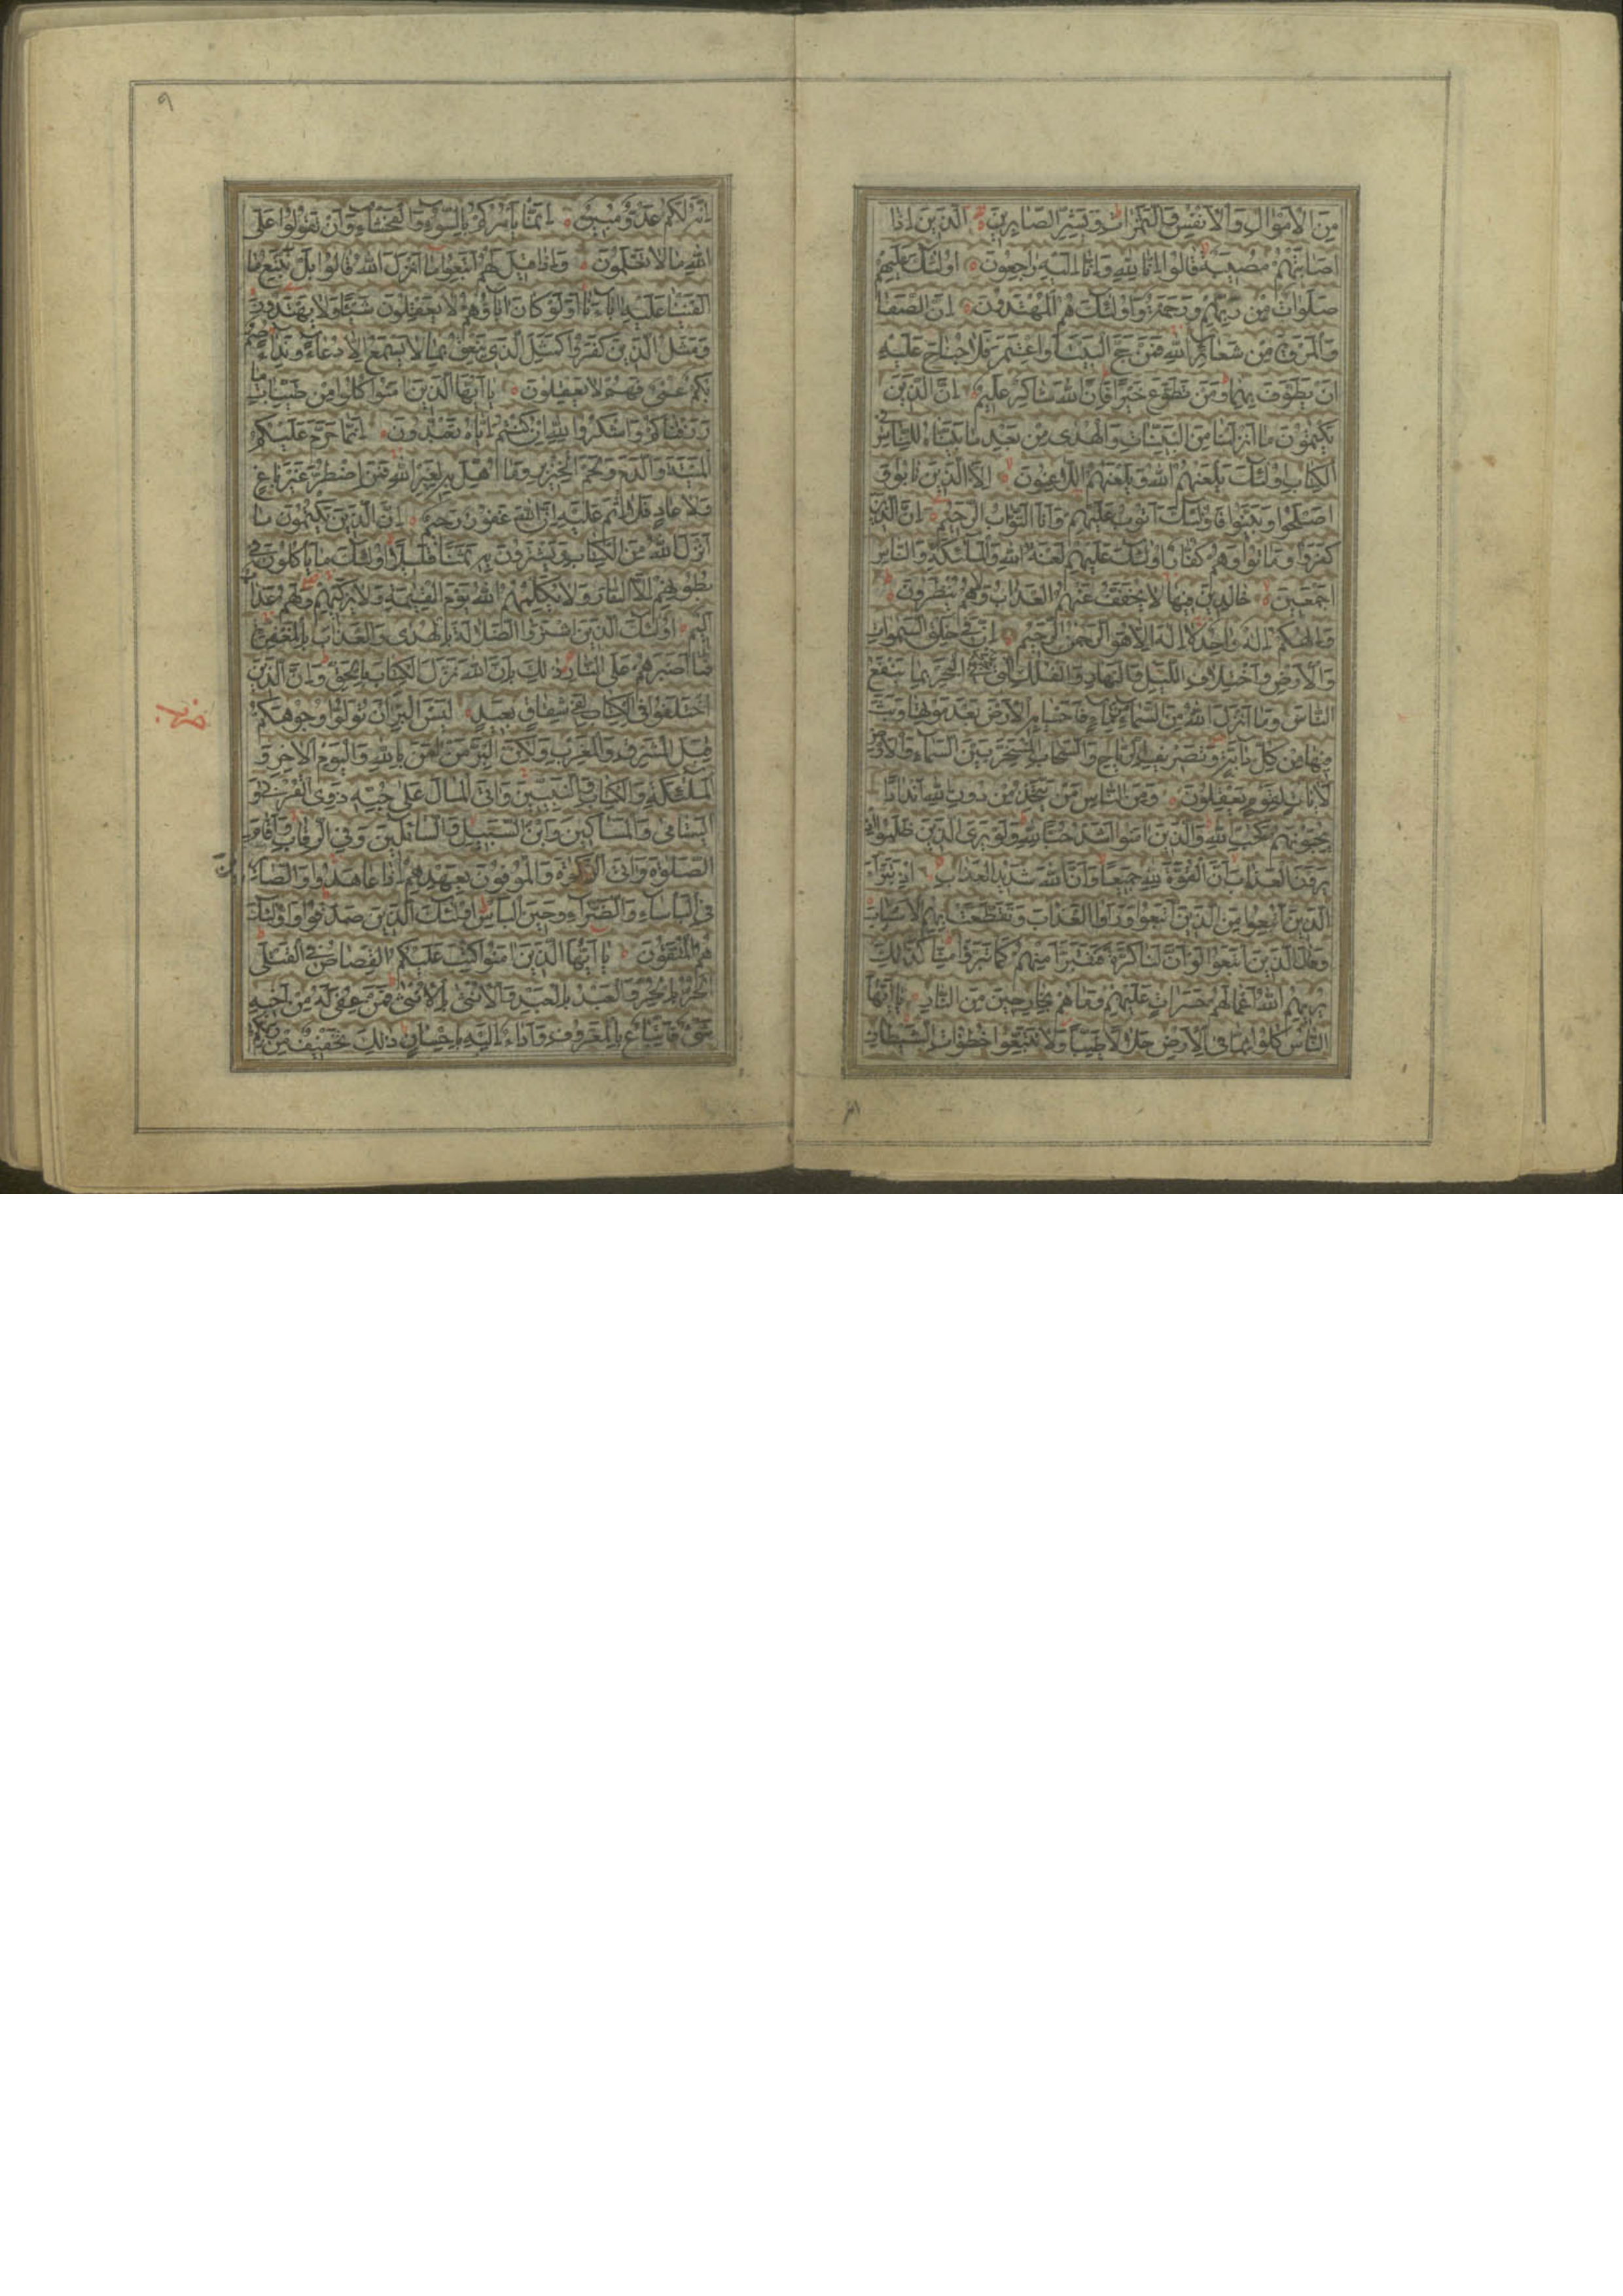 مِنَ الْاَمْوَالِ وَالْاَنْفُسِ وَالثَّمَرَاتِ وَبَشِّرِ الصَّابِرِينَ الَّذِينَ اِذَا
اَصَابَتْهُمْ مُصِيبَةٌ قَالُوا اِنَّا لِلّٰهِ وَاِنَّا اِلَيْهِ رَاجِعُونَ اُولٰئِكَ عَلَيْهِمْ
صَلَوَاتٌ مِنْ رَبِّهِمْ وَرَحْمَةٌ وَاُولٰئِكَ هُمُ الْمُهْتَدُونَ اِنَّ الصَّفَا
وَالْمَرْوَةَ مِنْ شَعَائِرِ اللّٰهِ فَمَنْ حَجَّ الْبَيْتَ اَوِ اعْتَمَرَ فَلَا جُنَاحَ عَلَيْهِ
اَنْ يَطَّوَّفَ بِهِمَا وَمَنْ تَطَوَّعَ خَيْرًا فَاِنَّ اللّٰهَ شَاكِرٌ عَلِيمٌ اِنَّ الَّذِينَ
يَكْتُمُونَ مَا اَنْزَلْنَا مِنَ الْبَيِّنَاتِ وَالْهُدٰى مِنْ بَعْدِ مَا بَيَّنَّاهُ لِلنَّاسِ فِي
الْكِتَابِ اُولٰئِكَ يَلْعَنُهُمُ اللّٰهُ وَيَلْعَنُهُمُ اللَّاعِنُونَ اِلَّا الَّذِينَ تَابُوا وَ
اَصْلَحُوا وَبَيَّنُوا فَاُولٰئِكَ اَتُوبُ عَلَيْهِمْ وَاَنَا التَّوَّابُ الرَّحِيمُ اِنَّ الَّذِينَ
كَفَرُوا وَمَاتُوا وَهُمْ كُفَّارٌ اُولٰئِكَ عَلَيْهِمْ لَعْنَةُ اللّٰهِ وَالْمَلٰئِكَةِ وَالنَّاسِ
اَجْمَعِينَ خَالِدِينَ فِيهَا لَا يُخَفَّفُ عَنْهُمُ الْعَذَابُ وَلَا هُمْ يُنْظَرُونَ
وَاِلٰهُكُمْ اِلٰهٌ وَاحِدٌ لَا اِلٰهَ اِلَّا هُوَ الرَّحْمٰنُ الرَّحِيمُ اِنَّ فِي خَلْقِ السَّمٰوَاتِ
وَالْاَرْضِ وَاخْتِلَافِ اللَّيْلِ وَالنَّهَارِ وَالْفُلْكِ الَّتِي تَجْرِي فِي الْبَحْرِ بِمَا يَنْفَعُ
النَّاسَ وَمَا اَنْزَلَ اللّٰهُ مِنَ السَّمَاءِ مِنْ مَاءٍ فَاَحْيَا بِهِ الْاَرْضَ بَعْدَ مَوْتِهَا وَبَثَّ
فِيهَا مِنْ كُلِّ دَابَّةٍ وَتَصْرِيفِ الرِّيَاحِ وَالسَّحَابِ الْمُسَخَّرِ بَيْنَ السَّمَاءِ وَالْاَرْضِ
لَاٰيَاتٍ لِقَوْمٍ يَعْقِلُونَ وَمِنَ النَّاسِ مَنْ يَتَّخِذُ مِنْ دُونِ اللّٰهِ اَنْدَادًا
يُحِبُّونَهُمْ كَحُبِّ اللّٰهِ وَالَّذِينَ اٰمَنُوا اَشَدُّ حُبًّا لِلّٰهِ وَلَوْ يَرَى الَّذِينَ ظَلَمُوا اِذْ
يَرَوْنَ الْعَذَابَ اَنَّ الْقُوَّةَ لِلّٰهِ جَمِيعًا وَاَنَّ اللّٰهَ شَدِيدُ الْعَذَابِ اِذْ تَبَرَّاَ
الَّذِينَ اتُّبِعُوا مِنَ الَّذِينَ اتَّبَعُوا وَرَاَوُا الْعَذَابَ وَتَقَطَّعَتْ بِهِمُ الْاَسْبَابُ
وَقَالَ الَّذِينَ اتَّبَعُوا لَوْ اَنَّ لَنَا كَرَّةً فَنَتَبَرَّاَ مِنْهُمْ كَمَا تَبَرَّؤُا مِنَّا كَذٰلِكَ
يُرِيهِمُ اللّٰهُ اَعْمَالَهُمْ حَسَرَاتٍ عَلَيْهِمْ وَمَا هُمْ بِخَارِجِينَ مِنَ النَّارِ يَا اَيُّهَا
النَّاسُ كُلُوا مِمَّا فِي الْاَرْضِ حَلَالًا طَيِّبًا وَلَا تَتَّبِعُوا خُطُوَاتِ الشَّيْطَانِ
٩
اِنَّهُ لَكُمْ عَدُوٌّ مُبِينٌ اِنَّمَا يَاْمُرُكُمْ بِالسُّوءِ وَالْفَحْشَاءِ وَاَنْ تَقُولُوا عَلَى
اللّٰهِ مَا لَا تَعْلَمُونَ وَاِذَا قِيلَ لَهُمُ اتَّبِعُوا مَا اَنْزَلَ اللّٰهُ قَالُوا بَلْ نَتَّبِعُ مَا
اَلْفَيْنَا عَلَيْهِ اٰبَاءَنَا اَوَلَوْ كَانَ اٰبَاؤُهُمْ لَا يَعْقِلُونَ شَيْئًا وَلَا يَهْتَدُونَ
وَمَثَلُ الَّذِينَ كَفَرُوا كَمَثَلِ الَّذِي يَنْعِقُ بِمَا لَا يَسْمَعُ اِلَّا دُعَاءً وَنِدَاءً صُمٌّ
بُكْمٌ عُمْيٌ فَهُمْ لَا يَعْقِلُونَ يَا اَيُّهَا الَّذِينَ اٰمَنُوا كُلُوا مِنْ طَيِّبَاتِ مَا
رَزَقْنَاكُمْ وَاشْكُرُوا لِلّٰهِ اِنْ كُنْتُمْ اِيَّاهُ تَعْبُدُونَ اِنَّمَا حَرَّمَ عَلَيْكُمُ
الْمَيْتَةَ وَالدَّمَ وَلَحْمَ الْخِنْزِيرِ وَمَا اُهِلَّ بِهِ لِغَيْرِ اللّٰهِ فَمَنِ اضْطُرَّ غَيْرَ بَاغٍ
وَلَا عَادٍ فَلَا اِثْمَ عَلَيْهِ اِنَّ اللّٰهَ غَفُورٌ رَحِيمٌ اِنَّ الَّذِينَ يَكْتُمُونَ مَا
اَنْزَلَ اللّٰهُ مِنَ الْكِتَابِ وَيَشْتَرُونَ بِهِ ثَمَنًا قَلِيلًا اُولٰئِكَ مَا يَاْكُلُونَ فِي
بُطُونِهِمْ اِلَّا النَّارَ وَلَا يُكَلِّمُهُمُ اللّٰهُ يَوْمَ الْقِيٰمَةِ وَلَا يُزَكِّيهِمْ وَلَهُمْ عَذَابٌ
اَلِيمٌ اُولٰئِكَ الَّذِينَ اشْتَرَوُا الضَّلَالَةَ بِالْهُدٰى وَالْعَذَابَ بِالْمَغْفِرَةِ
فَمَا اَصْبَرَهُمْ عَلَى النَّارِ ذٰلِكَ بِاَنَّ اللّٰهَ نَزَّلَ الْكِتَابَ بِالْحَقِّ وَاِنَّ الَّذِينَ
اخْتَلَفُوا فِي الْكِتَابِ لَفِي شِقَاقٍ بَعِيدٍ لَيْسَ الْبِرَّ اَنْ تُوَلُّوا وُجُوهَكُمْ
قِبَلَ الْمَشْرِقِ وَالْمَغْرِبِ وَلٰكِنَّ الْبِرَّ مَنْ اٰمَنَ بِاللّٰهِ وَالْيَوْمِ الْاٰخِرِ وَ
الْمَلٰئِكَةِ وَالْكِتَابِ وَالنَّبِيِّينَ وَاٰتَى الْمَالَ عَلٰى حُبِّهِ ذَوِي الْقُرْبٰى وَ
الْيَتَامٰى وَالْمَسَاكِينَ وَابْنَ السَّبِيلِ وَالسَّائِلِينَ وَفِي الرِّقَابِ وَاَقَامَ
الصَّلٰوةَ وَاٰتَى الزَّكٰوةَ وَالْمُوفُونَ بِعَهْدِهِمْ اِذَا عَاهَدُوا وَالصَّابِرِينَ
فِي الْبَاْسَاءِ وَالضَّرَّاءِ وَحِينَ الْبَاْسِ اُولٰئِكَ الَّذِينَ صَدَقُوا وَاُولٰئِكَ
هُمُ الْمُتَّقُونَ يَا اَيُّهَا الَّذِينَ اٰمَنُوا كُتِبَ عَلَيْكُمُ الْقِصَاصُ فِي الْقَتْلٰى
اَلْحُرُّ بِالْحُرِّ وَالْعَبْدُ بِالْعَبْدِ وَالْاُنْثٰى بِالْاُنْثٰى فَمَنْ عُفِيَ لَهُ مِنْ اَخِيهِ
شَيْءٌ فَاتِّبَاعٌ بِالْمَعْرُوفِ وَاَدَاءٌ اِلَيْهِ بِاِحْسَانٍ ذٰلِكَ تَخْفِيفٌ مِنْ رَبِّكُمْ